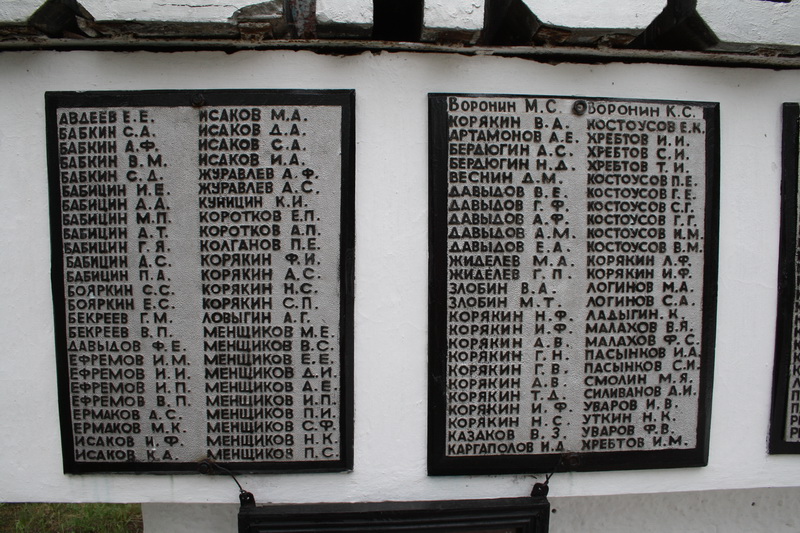 АВДЕЕВ Е.Е.
БАБКИН С.А.
БАБКИН А.Ф.
БАБКИН В.М.
БАБКИН С.Д.
БАБИЦИН И.Е.
БАБИЦИН А.А.
БАБИЦИН М.П.
БАБИЦИН А.Т.
БАБИЦИН Г.Я.
БАБИЦИН А.С.
БАБИЦИН П.А.
БОЯРКИН С.С.
БОЯРКИН Е.С.
БЕКРЕЕВ Г.М.
БЕКРЕЕВ В.П.
ДАВЫДОВ Ф.Е.
ЕФРЕМОВ И.М.
ЕФРЕМОВ И.И.
ЕФРЕМОВ И.П.
ЕФРЕМОВ В.П.
ЕРМАКОВ А.С.
ЕРМАКОВ М.К.
ИСАКОВ И.Ф.
ИСАКОВ К.А.
ИСАКОВ М.А.
ИСАКОВ Д.А.
ИСАКОВ С.А.
ИСАКОВ И.А.
ЖУРАВЛЕВ А.Ф.
ЖУРАВЛЕВ А.С.
КУНИЦИН К.И.
КОРОТКОВ Е.П.
КОРОТКОВ А.П.
КОЛГАНОВ П.Е.
КОРЯКИН Ф.И.
КОРЯКИН А.С.
КОРЯКИН Н.С.
КОРЯКИН С.П.
ЛОВЫГИН А.Г.
МЕНЩИКОВ М.Е.
МЕНЩИКОВ В.С.
МЕНЩИКОВ Е.Е.
МЕНЩИКОВ Д.И.
МЕНЩИКОВ А.Е.
МЕНЩИКОВ И.П.
МЕНЩИКОВ П.И.
МЕНЩИКОВ С.Ф.
МЕНЩИКОВ Н.К.
МЕНЩИКОВ П.С.
ВОРОНИН М.С.
КОРЯКИН В.А.
АРТАМОНОВ А.Е.
БЕРДЮГИН А.С.
БЕРДЮГИН Н.Д.
ВЕСНИН Д.М.
ДАВЫДОВ В.Е.
ДАВЫДОВ Г.Ф.
ДАВЫДОВ А.Ф.
ДАВЫДОВ А.М.
ДАВЫДОВ Е.А.
ЖИДЕЛЕВ М.А.
ЖИДЕЛЕВ Г.П.
ЗЛОБИН В.А.
ЗЛОБИН М.Т.
КОРЯКИН Н.Ф.
КОРЯКИН И.Ф.
КОРЯКИН А.В.
КОРЯКИН Г.Н.
КОРЯКИН Г.В.
КОРЯКИН А.В.
КОРЯКИН Т.Д.
КОРЯКИН И.Ф.
КОРЯКИН Н.С.
КАЗАКОВ В.З.
КАРГАПОЛОВ И.Д
ВОРОНИН К.С.
КОСТОУСОВ Е.К.
ХРЕБТОВ И.И.
ХРЕБТОВ С.И.
ХРЕБТОВ Т.И.
КОСТОУСОВ П.Е.
КОСТОУСОВ Г.Е.
КОСТОУСОВ С.Г.
КОСТОУСОВ Г.Г.
КОСТОУСОВ И.М.
КОСТОУСОВ В.М.
КОРЯКИН Л.Ф.
КОРЯКИН И.Ф.
ЛОГИНОВ М.А.
ЛОГИНОВ С.А.
ЛАДЫГИН.К.
МАЛАХОВ В.Я.
МАЛАХОВ Ф.С.
ПАСЫНКОВ И.А.
ПАСЫНКОВ С.И.
СМОЛИН М.Я.
СИЛИВАНОВ А.И.
УВАРОВ И.В.
УТКИН Н.К.
УВАРОВ Ф.В.
ХРЕБТОВ И.М.